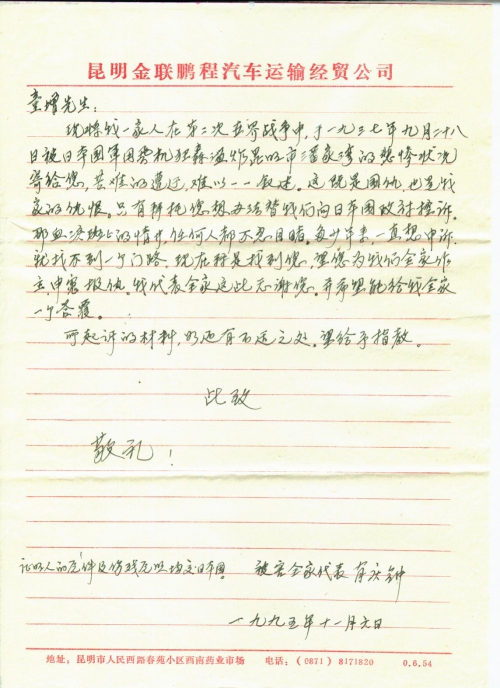 昆明金联鹏程汽车运输经贸公司
童增先生：
现将我一家人在第二次世界战争中，于一九三七年九月二十八
日被日本国军国费机狂轰滥炸昆明市潘家湾的悲惨状况
寄给您，苦难的遭迂，难以一一叙述。这既是国仇，也是我
家的仇恨。只有拜托您想办法替我们向日本国政府控诉。
那血迹班上的情节，任何人都不忍目睹。多少年来，一直想申诉，
就找不到一个门路。现在种是找到您，望您为我们全家作
主，申冤报仇。我代表全家这此忘谢您。并希望能给我全家
一个答覆。
可起诉的材料，如还有不适之处。望给予指教。
此致
敬礼！
证明人的 件及伤残 照均交日本国。 被害全家代表 庆钟
一九九五年十一月六日
地址：昆明市人民西路春苑小区西南药业市场 电话：（0871）8171820 0.6.54